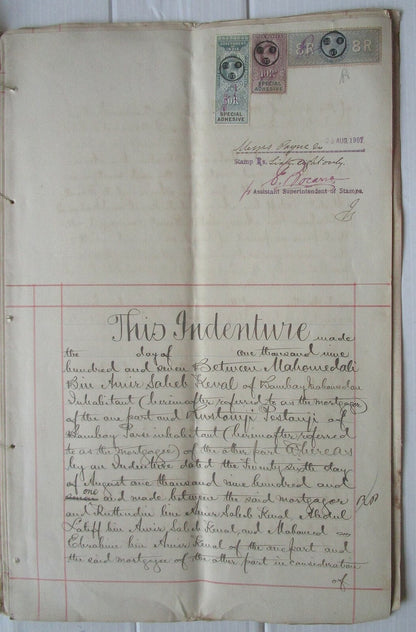 SPECIAL ADHESIVE
SPECIAL ADHESIVE
8R 8R
AUG 1907
Stamp Rs. Sixty eight only
Assistant Superintendent of Stamps.
This Indenture made
the day of one thousand nine
hundred and seven Between Mahomedali
Bin Amir Saheb Keval of Bombay Mahomedan
Inhabitant (hereinafter referred to as the mortgagor)
of the one part and Rustomji Pestonji of
Bombay Parsi inhabitant (hereinafter referred
to as the mortgagee) of the other part Whereas
by an Indenture dated the Twenty sixth day
of August one thousand nine hundred and
one
and made between the said mortgagor
and bin Amir Saheb Keval Abdul
Latiff bin Amir Saheb Keval and Mahomed
Ebrahim bin Amir Keval of the one part and
the said mortgagee of the other part in consideration
of